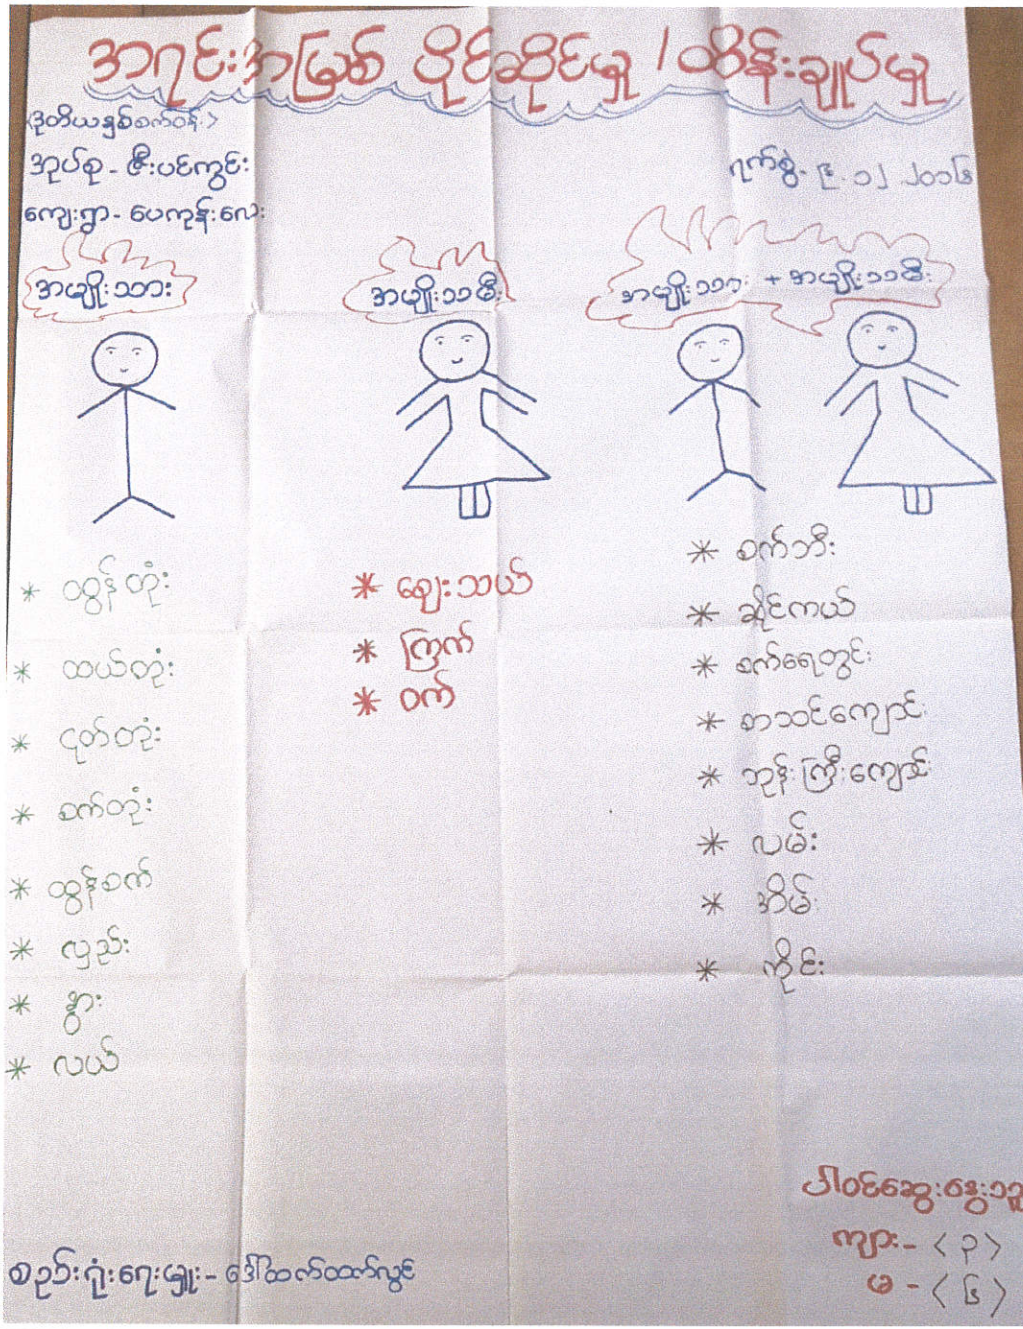 အရင်းအမြစ် ပိုင်ဆိုင်မှု / ထိန်းချုပ်မှု
<ဒုတိယနှစ်စက်ဝန်း>
အုပ်စု - ဇီးပင်ကွင်း
ရက်စွဲ - ၉.၁၂.၂၀၁၆
ကျေးရွာ - ပေကုန်းလေး
အမျိုးသား
အမျိုးသမီး
အမျိုးသား + အမျိုးသမီး
* ထွန်တုံး
* ထယ်တုံး
* ငုတ်တုံး
* စက်တုံး
* ထွန်စက်
* လှည်း
* နွား
* လယ်
* ဈေးသယ်
* ကြက်
* ဝက်
* စက်ဘီး
* ဆိုင်ကယ်
* စက်ရေတွင်း
* စာသင်ကျောင်း
* ဘုန်းကြီးကျောင်း
* လမ်း
* အိမ်
* ကိုင်း
ပါဝင်ဆွေးနွေးသူ
ကျား - < ၃ >
မ - < ၆ >
စည်းရုံးရေးမှူး - ဒေါ်ထက်ထက်လွင်